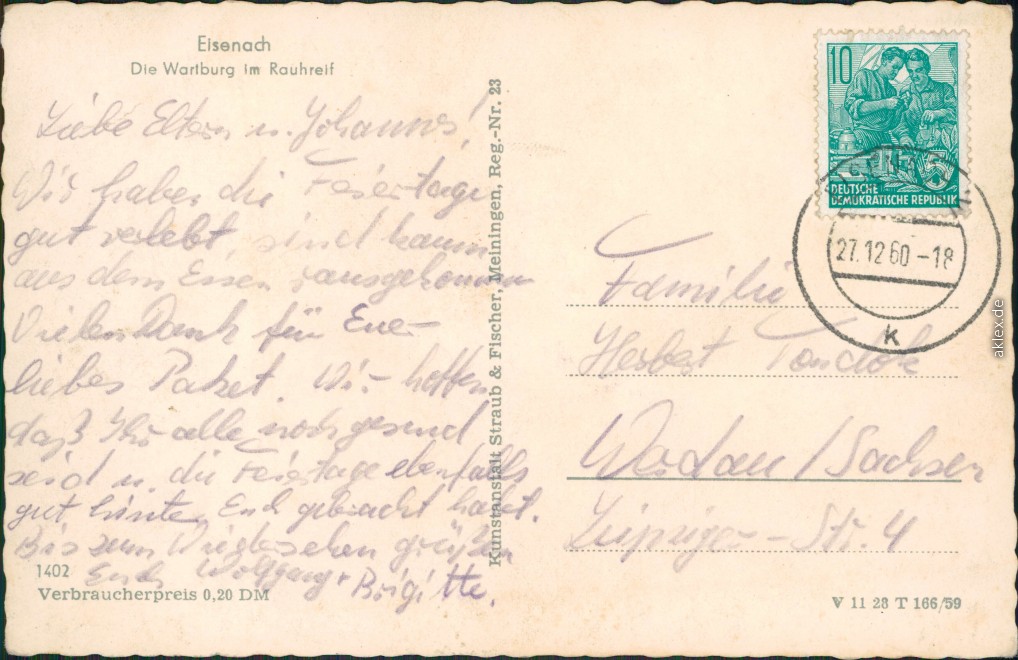 Eisenach
Die Wartburg im Rauhreif
Liebe Eltern u. Johannes!
Wir haben die Feiertage
gut verlebt sind kaum
aus dem Essen rausgekommen
Vielen Dank für Eue
liebes Paket. Wir hoffen
daß Ihr alle noch gesund
seid u. die Feiertage ebenfalls
gut hinter Euch gebracht habt.
Bis zum Wiedersehen grüßen
Euch Wolfgang + Brigitte.
1402
Verbraucherpreis 0,20 DM
Kunstanstalt Straub & Fischer, Meiningen, Reg.-Nr. 23
10
DEUTSCHE
DEMOKRATISCHE REPUBLIK
27.12.60 -18
k
Familie
Herbert
/Sachsen
Leipziger - Str. 4
V 11 28 T 166/59
aklex.de